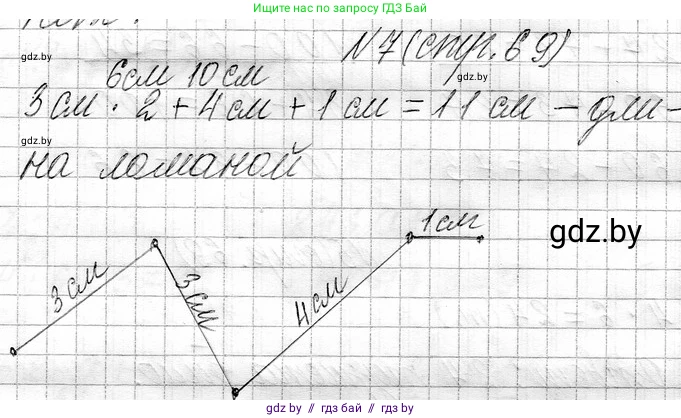 Ищите нас по запросу ГДЗ Бай
gdz.by
N 7 (стр. 69)
gdz.by
6см 10см
3см · 2 + 4см + 1см = 11см – дли-
gdz.by
на ломаной
1см
gdz.by
3см
3см
4см
gdz.by // гдз бай // gdz by